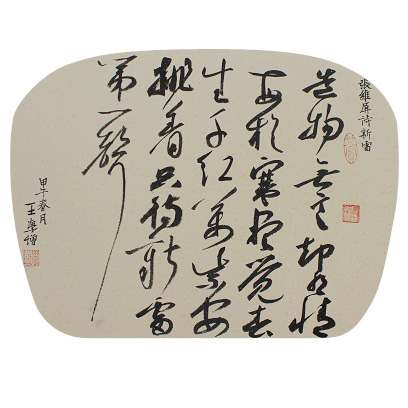 張維屏詩新雷
造物无言却有情
每於寒盡覺春
生千紅萬紫安
排着只待新雷
第一聲
甲午春月
王學僧